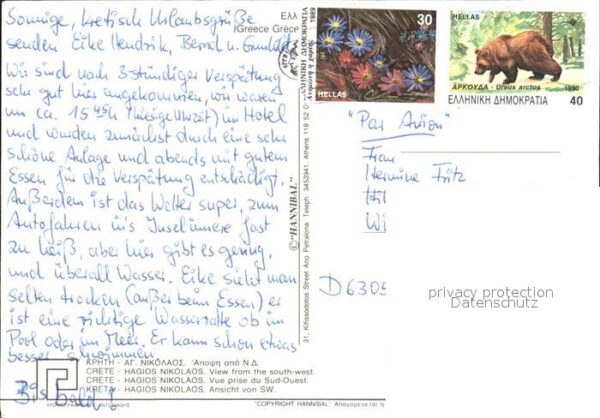 Sonnige, kretisch Urlaubsgrüße
senden Eike Hendrik, Bernd u. Gunhild
Wir sind nach 3stündiger Verspätung
sehr gut hier angekommen, wir waren
um ca. 15 45h (hiesige Uhrzeit) im Hotel
und wurden zunächst durch eine sehr
schöne Anlage und abends mit gutem
Essen für die Verspätung entschädigt.
Außerdem ist das Wetter super, zum
Autofahren ins Inselinnere fast
zu heiß, aber hier gibt es genug,
und überall Wasser. Eike sieht man
selten trocken (außer beim Essen) er
ist eine richtige Wasserratte ob im
Pool oder im Meer. Er kann schon etwas
besser schwimmen
Bis bald!
ΕΛΛ
Greece Grece
ΕΛΛΗΝΙΚΗ ΔΗΜΟΚΡΑΤΙΑ
1989
30
HELLAS
HELLAS
ΑΡΚΟΥΔΑ - Ursus arctos 1990
ΕΛΛΗΝΙΚΗ ΔΗΜΟΚΡΑΤΙΑ 40
"Par Avion"
Frau
Hermine Fritz
Wi
D 6305
privacy protection
Datenschutz
© "HANNIBAL"
31, Kifissodotos Street Ano Petralona, Teleph. 3453941, Athens 118 52
ΚΡΗΤΗ - ΑΓ. ΝΙΚΟΛΑΟΣ. Άποψη από Ν.Δ.
CRETE - HAGIOS NIKOLAOS. View from the south-west.
CRETE - HAGIOS NIKOLAOS. Vue prise du Sud-Ouest.
KRETA - HAGIOS NIKOLAOS. Ansicht von SW.
"COPYRIGHT HANNIBAL" Απαγορεύεται η